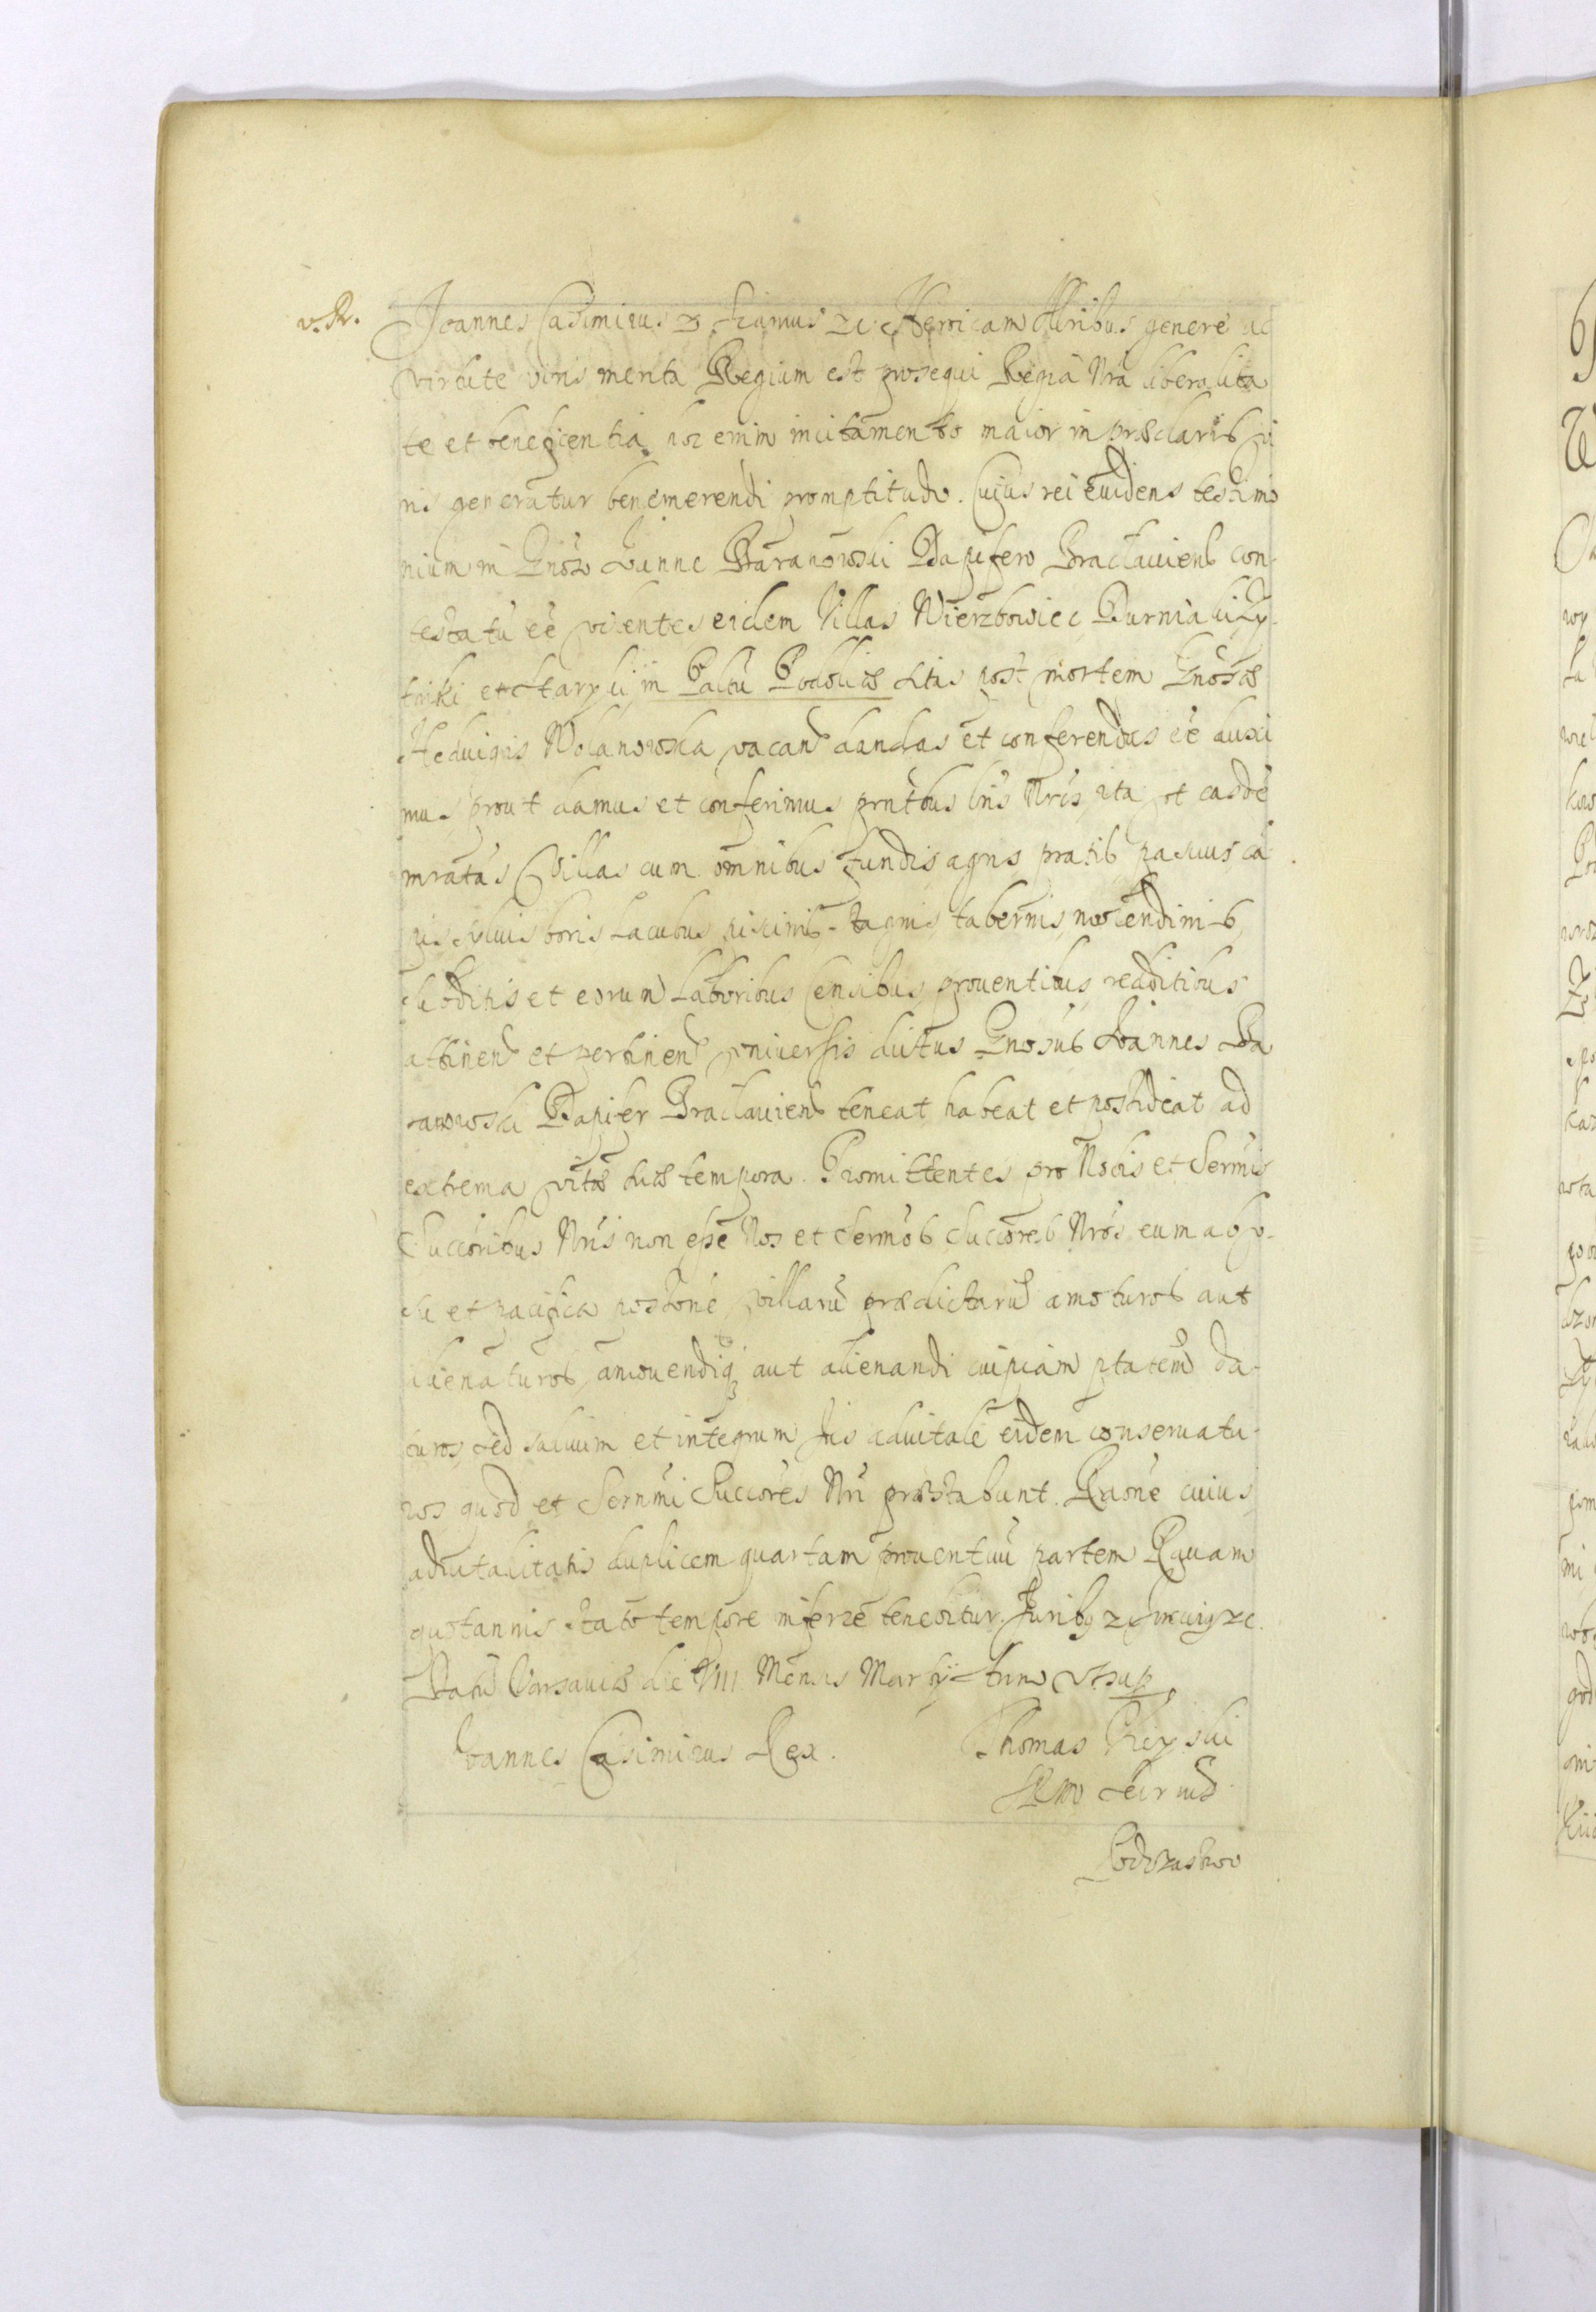 v. R.
Joannes Casimirus &c. Sciamus &c. claribus genere ac
virtute viris merita Regium est prosequi Regia Nra liberalita
te et beneficentia, hoc enim incitamento maior in præclaris vi
ris generatur benemerendi promptitudo. Cuius rei evidens testimo
nium in Gnoso Joanne Baranowski Dapifero Braclauiens con-
testatu ee videntes eidem Villas Wierzbowiec
et in Pałtu Podoliæ sitas post mortem Gnosæ
Heduigis Wolanowska vacan dandas et conferendas ee duxi
mus prout damus et conferimus prntbus lris Nris, ita ut easdē
mratas Villas cum omnibus fundis agris pratis pascuis cā
pis syluis boris Lacubus piscinis stagnis tabernis molendinis
subditis et eorum Laboribus Censibus prouentibus redditibus
attinen et pertinen vniuersis dictus Gnosus Joannes Ba
ranowski Dapifer Braclauiens teneat habeat et possideat ad
extrema vitæ suæ tempora. Promittentes pro Nobis et Sermis
Succoribus Nris non esse Nos et Sermos Succores Nros eum ab v-
su et pacifica possone villaru prædictaru amoturos aut
alienaturos, amouendiq aut alienandi cuipiam ptatem da-
turos sed saluum et integrum Jus aduitale eidem conseruatu-
ros quod et Sernmi Succores Nri præstabunt. Raone cuius
aduitalitatis duplicem quartam prouentuu partem Rauam
quotannis stato tempore inferre tenebitur. Juribus &c. In cuius &c.
Datu Varsauiæ die VIII Mensis Martij Anno vt sup
Joannes Casimirus Rex. Thomas